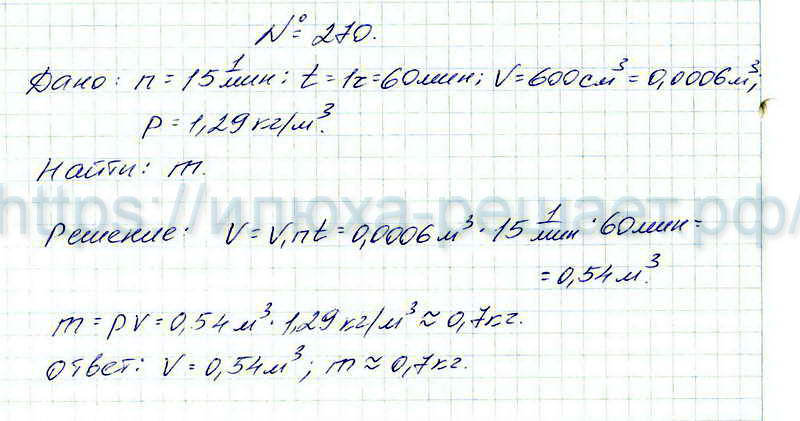 № 270.
Дано: n = 15 1/мин; t = 1ч = 60 мин; V = 600 см³ = 0,0006 м³;
ρ = 1,29 кг/м³.
Найти: m.
https://илюха-решает.рф/
Решение: V = V₁nt = 0,0006 м³ · 15 1/мин · 60 мин =
= 0,54 м³.
m = ρV = 0,54 м³ · 1,29 кг/м³ ≈ 0,7 кг.
Ответ: V = 0,54 м³; m ≈ 0,7 кг.